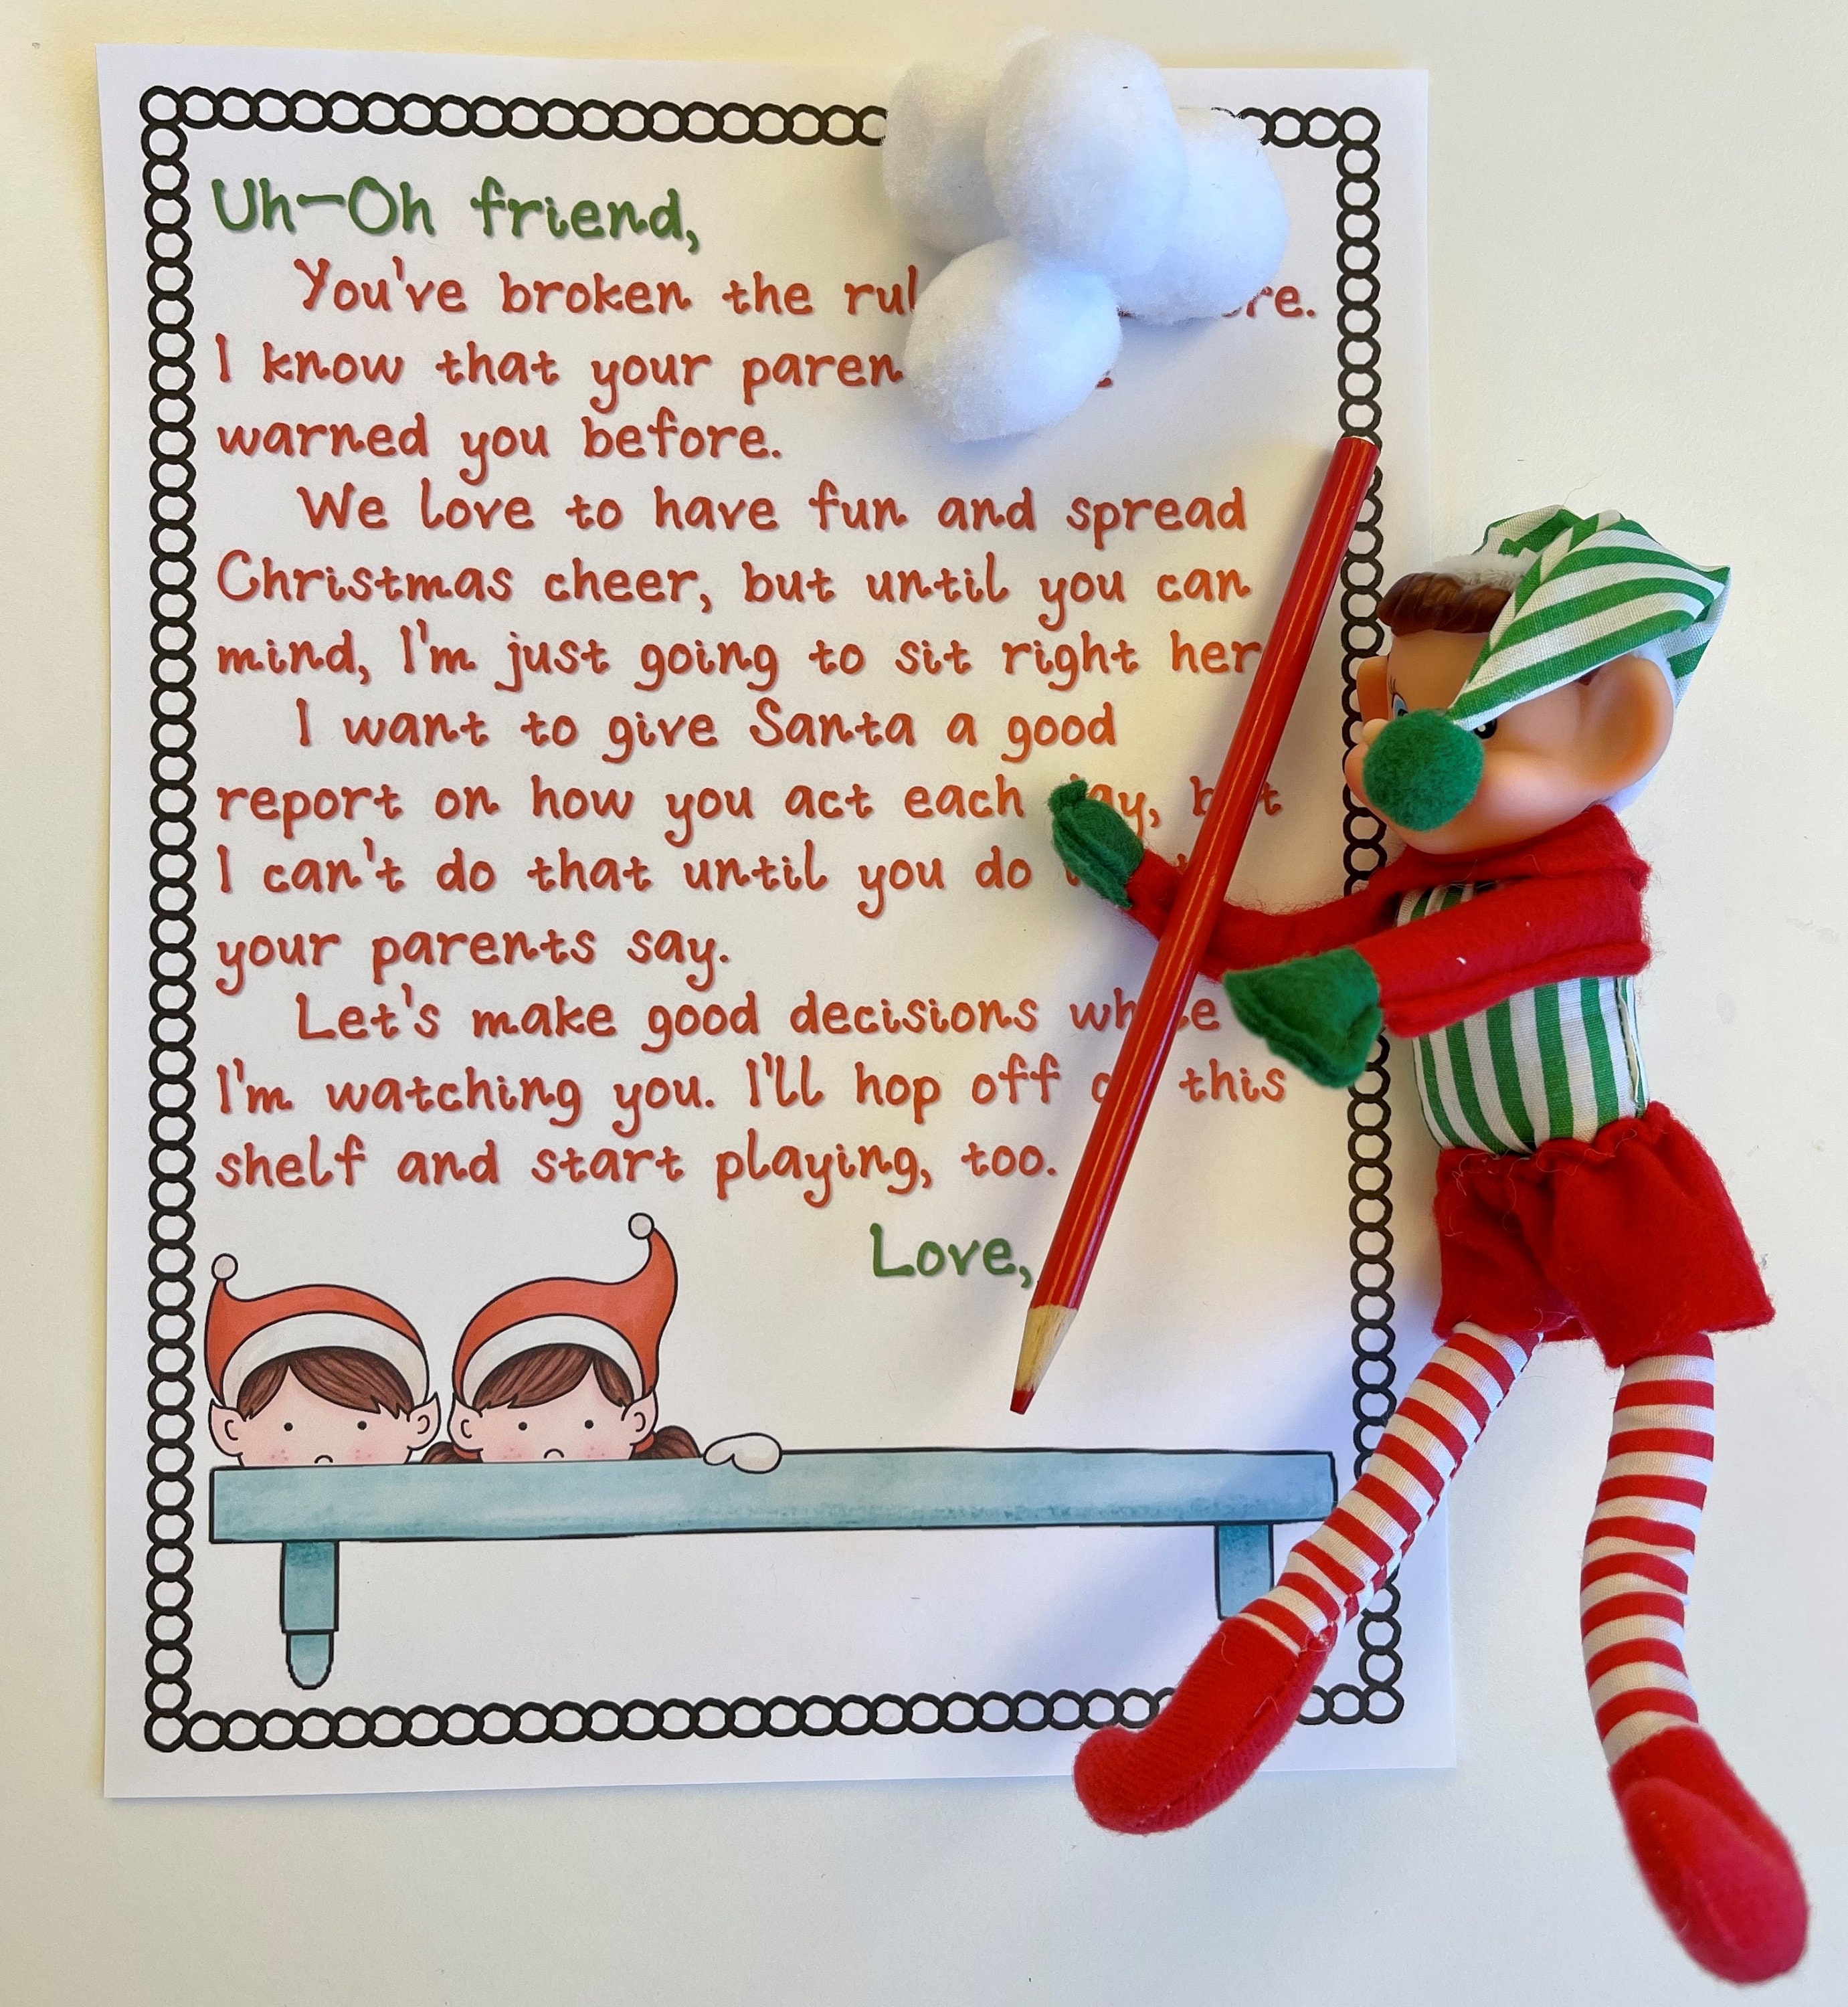 Uh-Oh friend,
You've broken the
I know that your
warned you before.
We love to have fun and spread
Christmas cheer, but until you can
mind, I'm just going to sit right
I want to give Santa a good
report on how you act each
I can't do that until you do
your parents say.
Let's make good decisions while
I'm watching you. I'll hop off this
shelf and start playing, too.
Love,